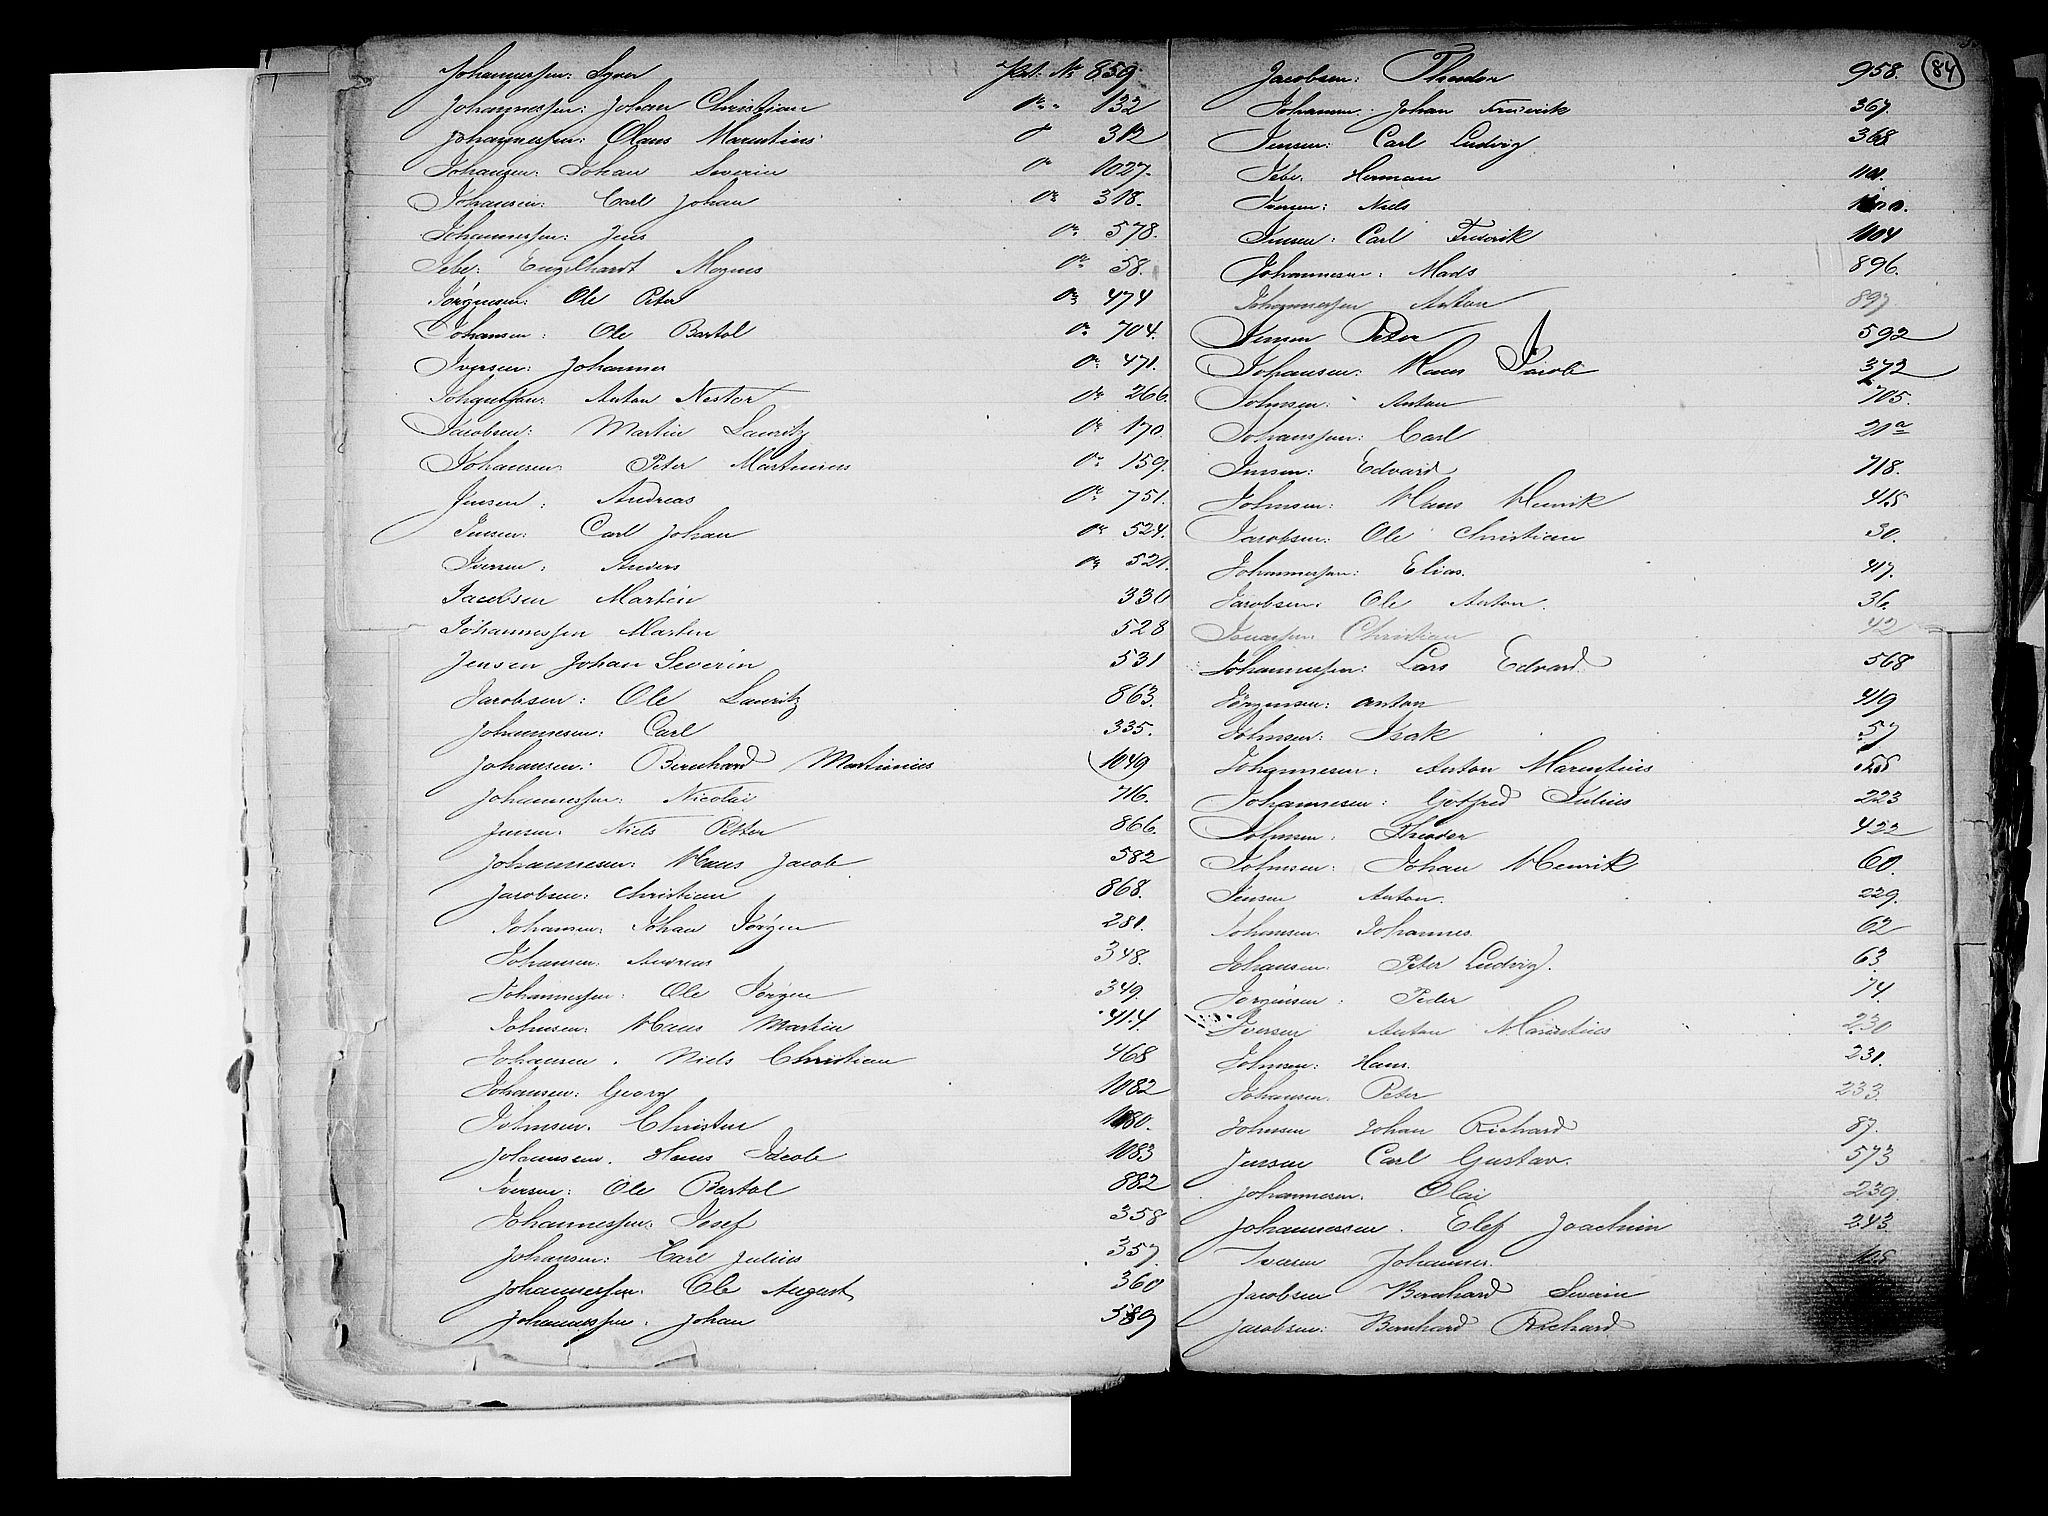 Johannessen: Syver Pat: No 859.
Johannessen: Johan Christian do " 132
Johannessen: Olaus Marentius do 312
Johansen: Johan Severin do 1027.
Johansen: Carl Johan do 318.
Johannessen: Jens do 578.
Jebe: Engelhardt Mogens do 58.
Jørgensen: Ole Peter do 474
Johansen: Ole Bartol do 704.
Iversen: Johannes do 471.
Johansen: Anton Nestor do 266.
Jacobsen: Martin Lauritz do 170.
Johansen: Peter Martinius do 159.
Jensen: Andreas do 751.
Jensen: Carl Johan do 524.
Iversen: Anders do 521.
Jacobsen Martin 330
Johannessen Martin 528
Jensen Johan Severin 531
Jacobsen: Ole Lauritz 863.
Johannesen: Carl 335.
Johansen: Bernhard Martinius 1049
Johannessen: Nicolai 716.
Jensen: Niels Petter 866.
Johannesen: Hans Jacob 582
Jacobsen: Christian 868.
Johansen: Johan Jørgen 281.
Johansen: Andreas 348.
Johannessen: Ole Jørgen 349.
Johnsen: Hans Martin 414
Johansen. Niels Christian 468
Johansen: Georg 1082
Johnsen. Christen 1080.
Johannsen. Hans Jacob 1083
Iversen: Ole Bartol 882
Johannessen: Josef 358
Johansen: Carl Julius 357.
Johannessen: Ole August 360
Johannessen. Johan 589
84
Jacobsen: Theodor 958.
Johansen: Johan Frederik 367.
Jensen: Carl Ludvig 368
Jebe. Herman 1101.
Iversen: Niels
Jensen: Carl Frederik 1104
Johannesen: Mads 896.
Johannessen Anton 897
Jensen Peter 592
Johansen: Hans Jacob 372
Johnsen: Anton 705.
Johanssen: Carl 21a
Jensen: Edvard 718.
Johnsen: Hans Henrik 415
Jacobsen: Ole Christian 30.
Johannessen: Elias. 417.
Jacobsen: Ole Anton. 36.
Jonassen: Christian 42
Johannessen: Lars Edvard. 568
Jørgensen: Anton 419
Johnsen: Isak 57
Johannesen: Anton Marentius
Johannesen: Gotfred Julius 223
Johnsen: Theodor 422
Johnsen: Johan Henrik 60.
Jensen Anton. 229.
Johansen: Johannes. 62
Johansen: Peter Ludvig. 63
Jørgensen: Peder 74.
Iversen Anton Marentius 230
Johnsen: Hans. 231.
Johansen. Peter 233.
Johnsen Johan Richard 87.
Jensen Carl Gustav. 573
Johannesen: Olai 239.
Johannessen. Elef Joachim 243
Iversen Johannes. 105
Jacobsen Bernhard Severin
Jacobsen: Bernhard Richard